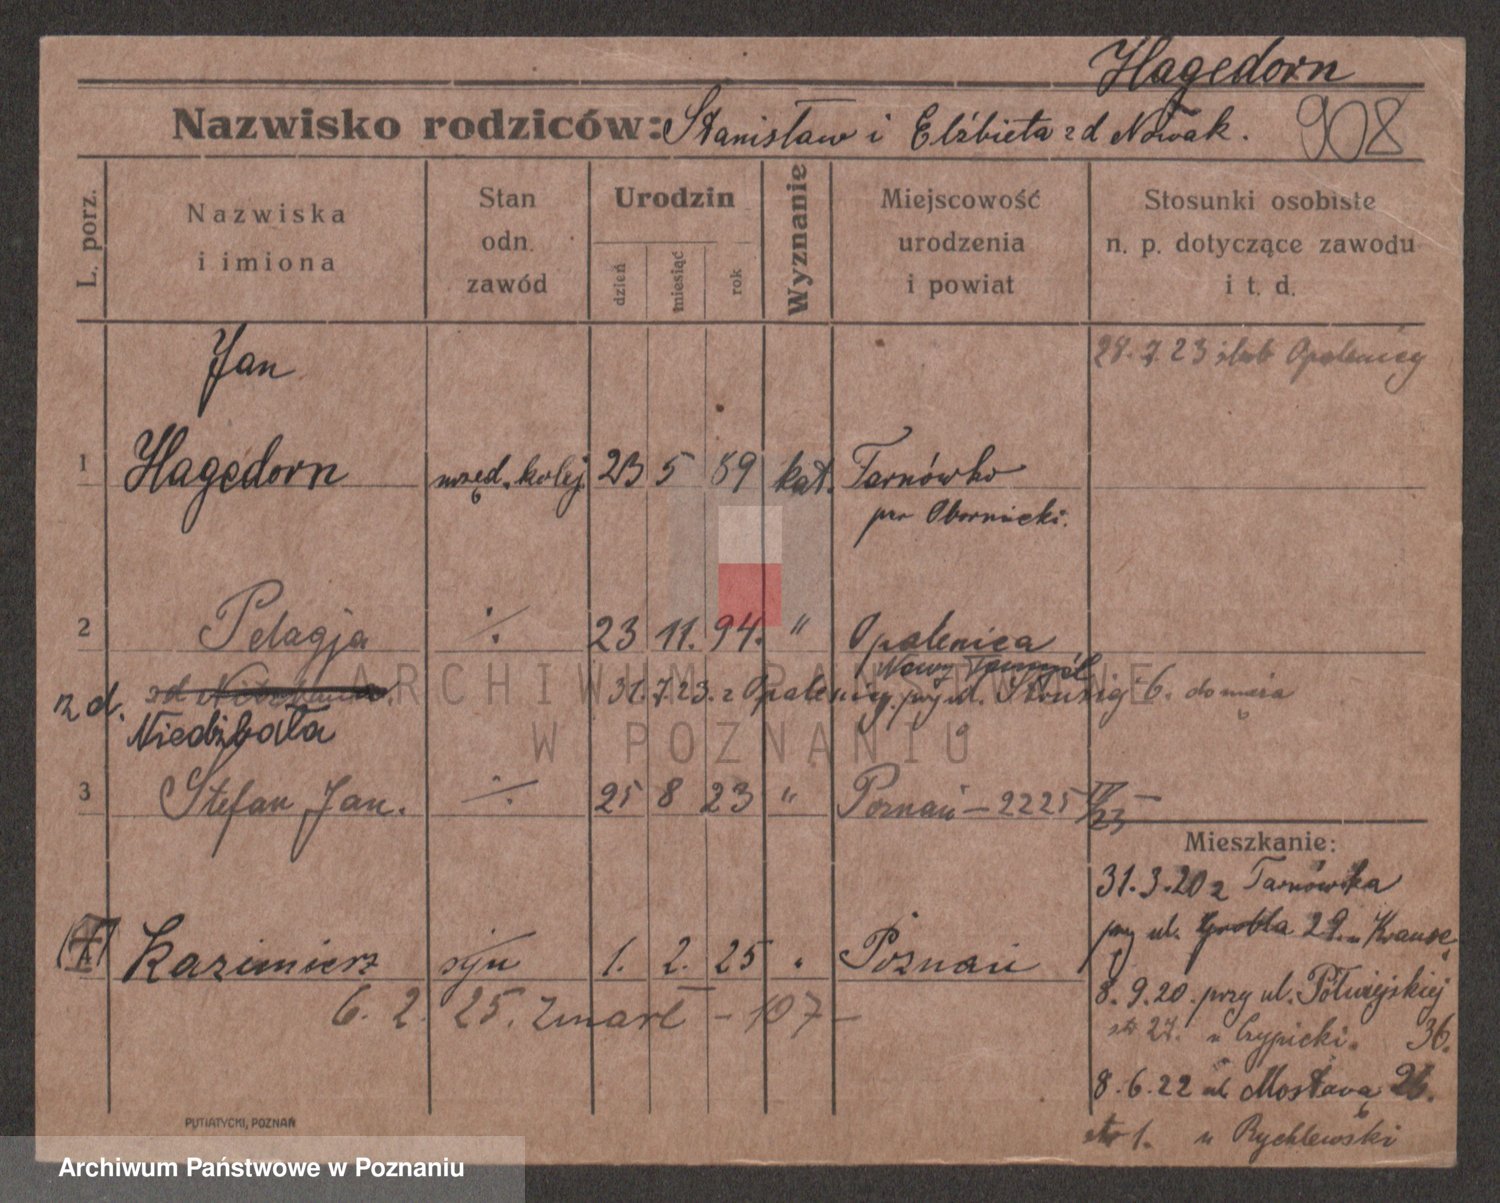 Hagedorn
Nazwisko rodziców: Stanisław i Elżbieta zd Nowak.
908
L. porz.
Nazwiska
i imiona
Stan
odn.
zawód
Urodzin
dzień
miesiąc
rok
Wyznanie
Miejscowość
urodzenia
i powiat
Stosunki osobiste
n. p. dotyczące zawodu
i t. d.
28.7.23 ślub Opalenicy
Jan
1 Hagedorn urzęd. kolej 23 5 89 kat. Tarnówko
pw Obornicki.
2 Pelagja ·/. 23 11. 94. " Opalenica
Nowy Tomyśl
z d. 31.7.23. z Opalenicy przy ul. 6. do męża
Niedźbała
3 Stefan Jan. ·/. 25 8 23 " Poznań – 2225 IV/23 –
Mieszkanie:
31.3.20 z Tarnówka
przy ul. Grobla 29. u Krause
4 Kazimierz syn 1. 2. 25 " Poznań
6. 2. 25. zmarł – 107 –
8.9.20. przy ul. Półwiejskiej
27. u 36.
8.6.22 ul. Mostowa 26.
str 1. u Rychlewski
PUTIATYCKI, POZNAŃ
ARCHIWUM PAŃSTWOWE
W POZNANIU
Archiwum Państwowe w Poznaniu